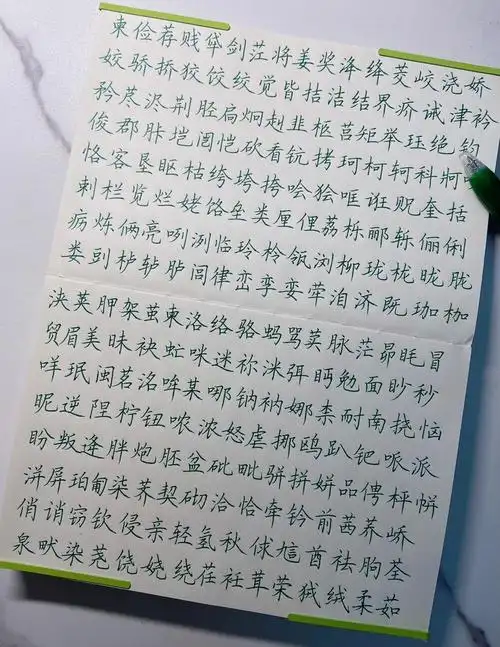 柬俭荐贱牮剑茳将姜奖洚绛茭峧浇娇
姣骄挢狡饺绞觉皆拮洁结界疥诫津衿
矜荩浕荆胫扃炯赳韭柩莒矩举珏绝钧
俊郡胩垲闿恺砍看钪拷珂柯轲科牁
恪客垦眍枯绔垮挎哙狯哐诳贶奎括
剌栏览烂姥饹垒类厘俚荔栎郦轹俪俐
疬炼俩亮咧洌临玲柃瓴浏柳珑栊昽胧
娄剅栌轳胪闾律峦孪娈荦洎济既珈枷
浃荚胛架茧柬洛络骆蚂骂荬脉茫茆眊冒
贸眉美昧袂虻咪迷祢洣弭眄勉面眇秒
咩珉闽茗洺哞某哪钠衲娜柰耐南挠恼
昵逆陧柠钮哝浓怒虐挪鸥趴钯哌派
盼叛逄胖炮胚盆砒毗骈拼姘品俜枰帡
洴屏珀匍荠契砌洽恰牵钤前茜荞峤
俏诮窃钦侵亲轻氢秋俅訄酋祛朐荃
泉畎染荛侥娆绕荏衽茸荣狨绒柔茹